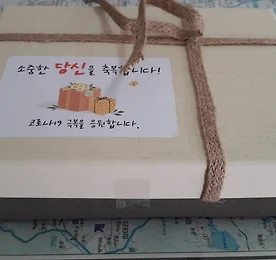 소중한 당신을 축복합니다!
코로나19 극복을 응원합니다.